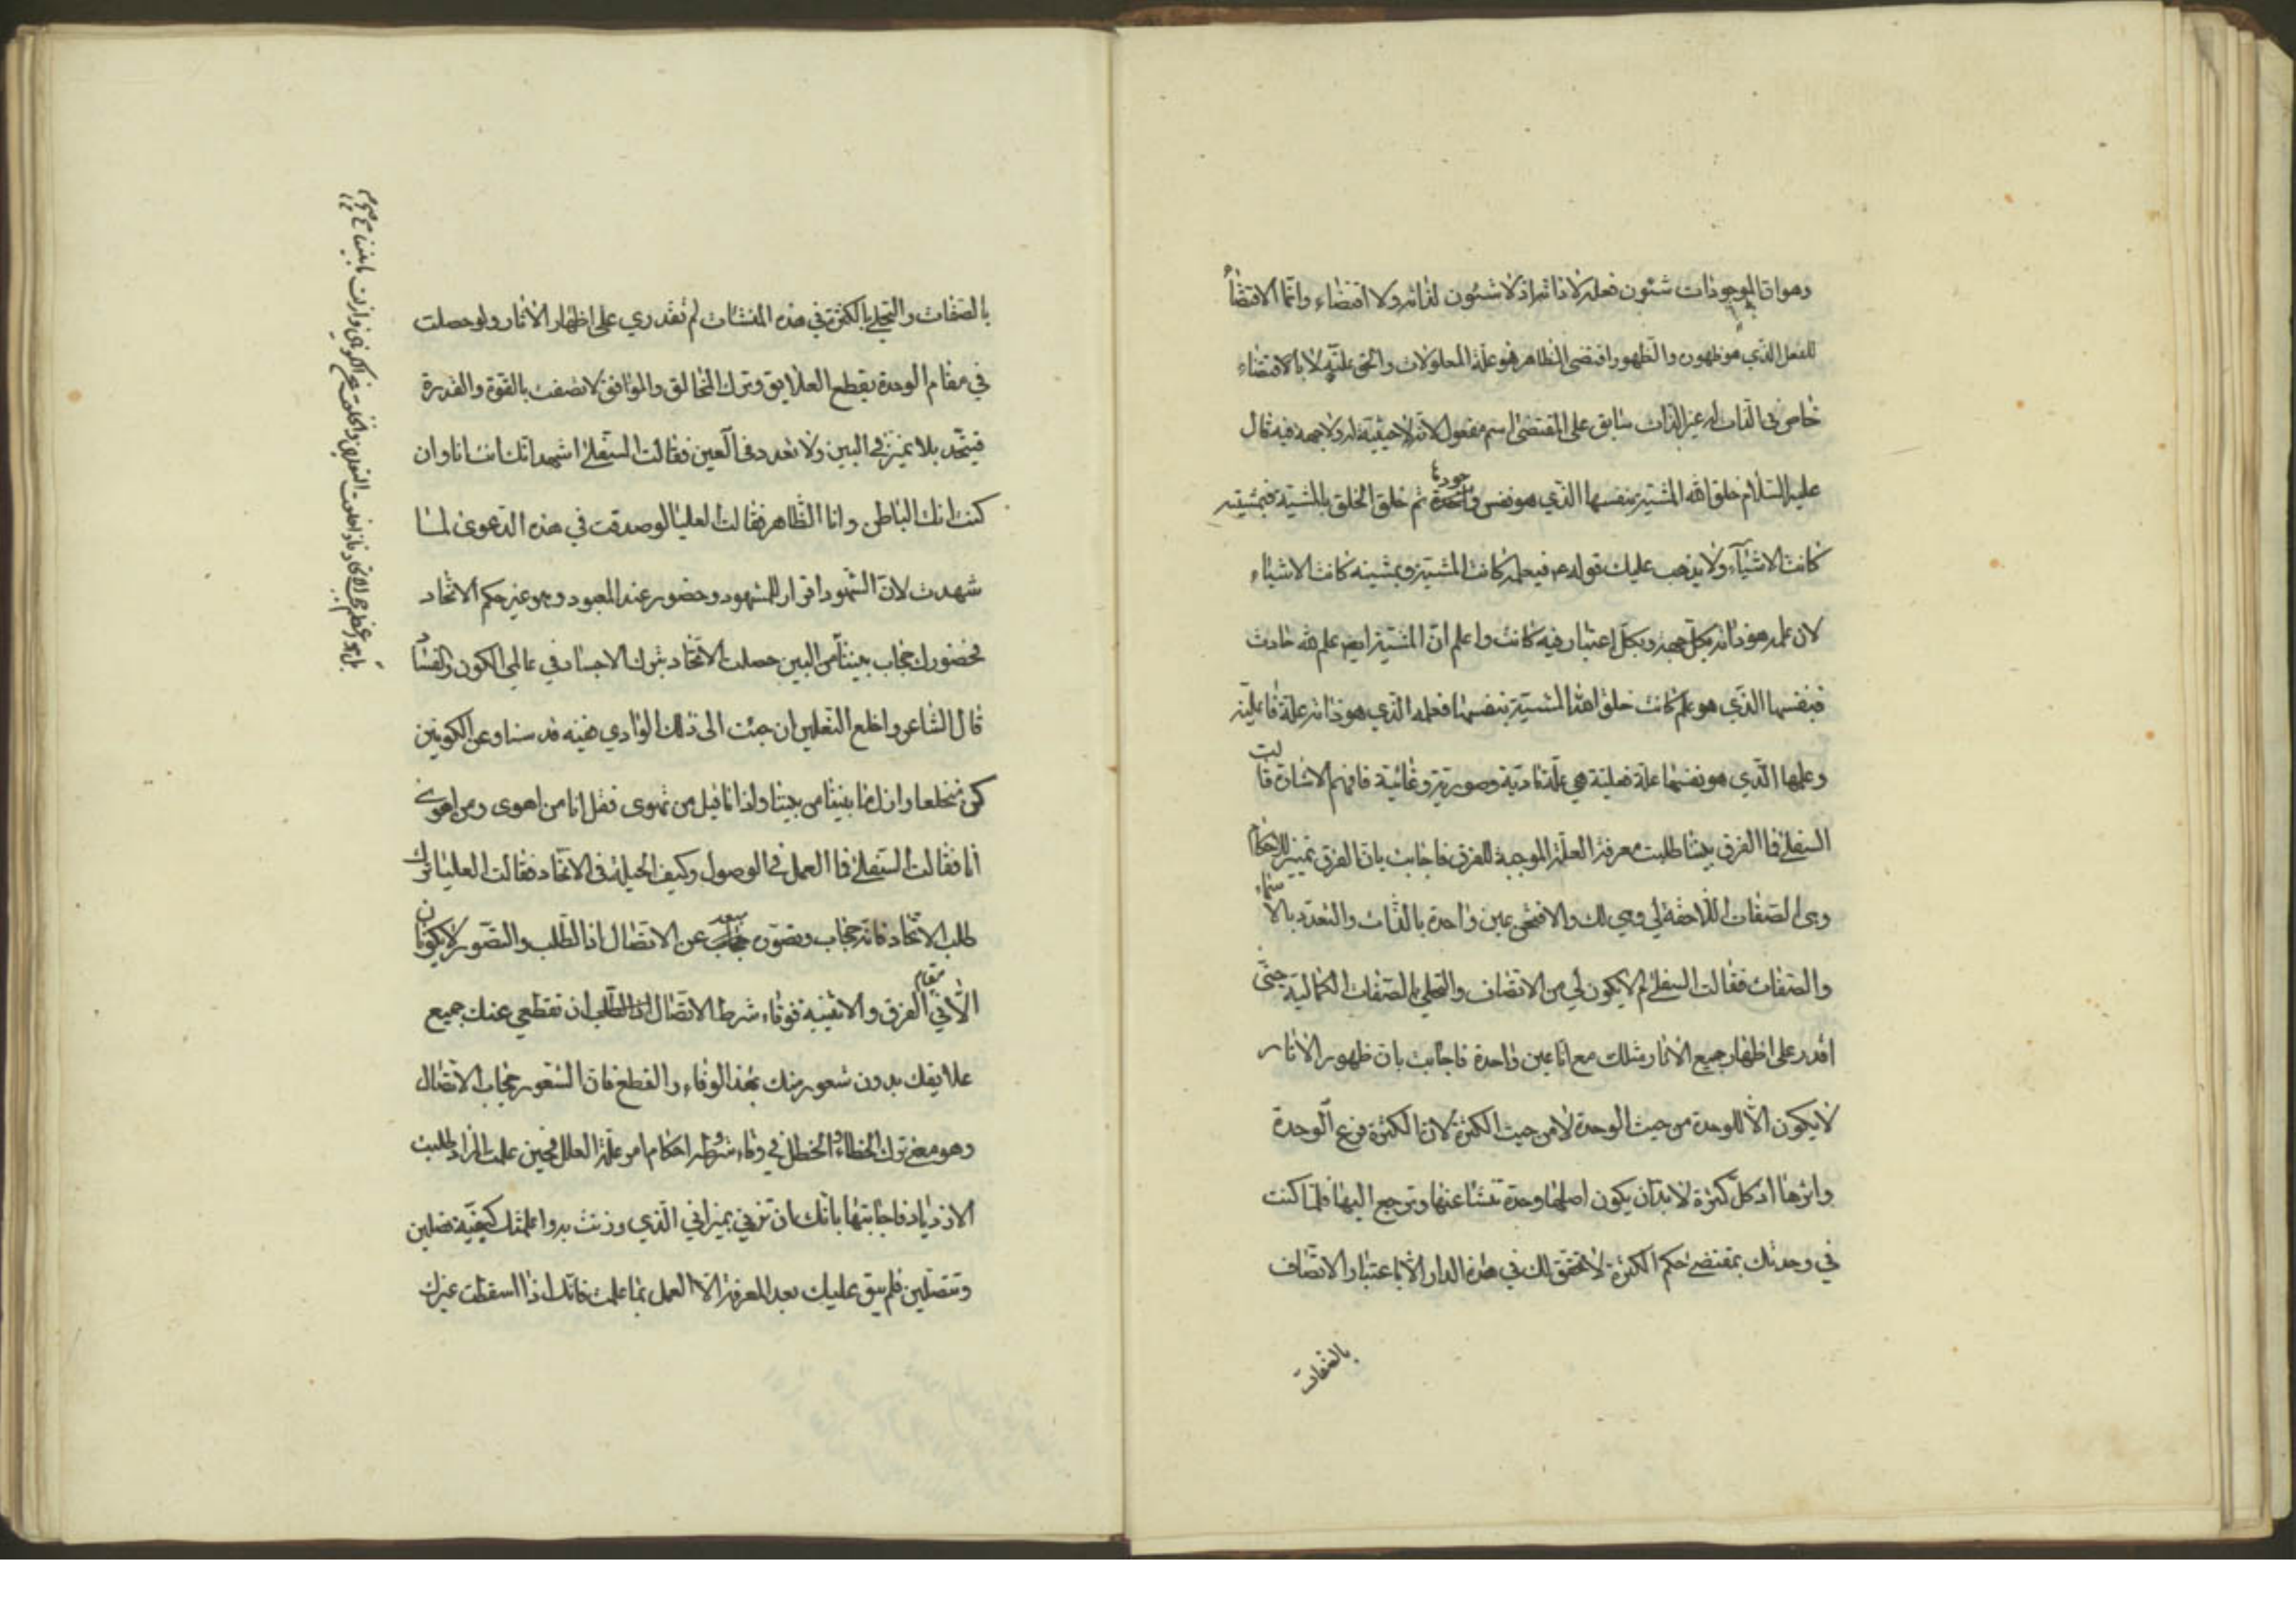 وهو ان الموجودات شئون فعله لا ذاته اذ لا شئون لذاته ولا اقتضاء وانما الاقتضاء
للفعل الذي هو ظهوره والظهور اقتضى المظاهر فهو علة المعلولات والحق علته لا بالاقتضاء
خاص في الذات او غير الذات سابق على المقتضى اسم مفعول لانه لا حيثية له ولا جهة فيه قال
عليه السلام خلق الله المشية بنفسها الذي هو نفس وجودها ثم خلق الخلق بالمشية فبمشيته
كانت الاشياء ولا يذهب عليك قوله ع فبعلمه كانت المشية وبمشيته كانت الاشياء
لان علمه هو ذاته بكل جهة وبكل اعتبار فيه كانت واعلم ان المشية ايضا علم لله حادث
فبنفسها الذي هو علم كانت خلق الله المشية بنفسها فعلمه الذي هو ذاته علة فاعلية
وعلمها الذي هو نفسها علة فعلية هي علة مادية وصورية وغائية فافهم الاشارة قالت
السفلى فما الفرق بيننا طلبت معرفة العلة الموجبة للفرق فاجابت بان الفرق تمييز للاحكام
وهي الصفات اللاحقة لي وهي لك والا فنحن عين واحدة بالذات والتعدد بالاسماء
والصفات فقالت السفلى لم لا يكون لي من الاتصاف والتحلي بالصفات الكمالية حتى
اقدر على اظهار جميع الاثار مثلك مع انا عين واحدة فاجابت بان ظهور الاثار
لا يكون الا للوحدة من حيث الوحدة لا من حيث الكثرة لان الكثرة فرع الوحدة
واثرها اذ كل كثرة لا بد ان يكون اصلها وحدة تنشا عنها وترجع اليها فلما كنت
في وحدتك بمقتضى حكم الكثرة لا تحقق لك في هذه الدار الا باعتبار الاتصاف
بالصفات
بالصفات والتحلي بالكثرة في هذه المنشات لم تقدري على اظهار الاثار ولو حصلت
في مقام الوحدة بقطع العلايق وترك المخالق والموافق لاتصفت بالقوة والقدرة
فيتحد بلا تميز في البين ولا تعدد في العين فقالت السفلى اشهد انك انت انا وان
كنت انك الباطن وانا الظاهر فقالت العليا لو صدقت في هذه الدعوى لما
شهدت لان الشهود اقرار للمشهود وحضور عند المعبود وهو غير حكم الاتحاد
فحضورك حجاب بيننا من البين حصلت الاتحاد بترك الاجساد في عالمي الكون والفساد
قال الشاعر واخلع النعلين ان جئت الى ذلك الوادي ففيه قد سنا وعن الكونين
كن منخلعا وازل ما بيننا من بيننا واذا ما قيل من تهوى فقل انا من اهوى ومن اهوى
انا فقالت السفلى فما العمل في الوصول وكيف الحيلة في الاتحاد فقالت العليا ترك
طلب الاتحاد فانه حجاب وتصوره بعد عن الاتصال اذ الطلب والتصور لا يكونان
الا في مقام الفرق والاثنينية فوفاء شرط الاتصال ان تقطعي عنك جميع
علايقك بدون شعور منك بهذا الوفاء والقطع فان الشعور حجاب الاتصال
وهو معنى ترك الخطاء والخطل في وفاء شروط احكام امر علة العلل فحين علمت المراد طلبت
الازدياد فاجابتها بانك ان تزني بميزاني الذي وزنت به واعلمتك كيفية تصلين
وتتصلين فلم يبق عليك بعد المعرفة الا العمل بما علمت فانك اذا اسقطت غيرك